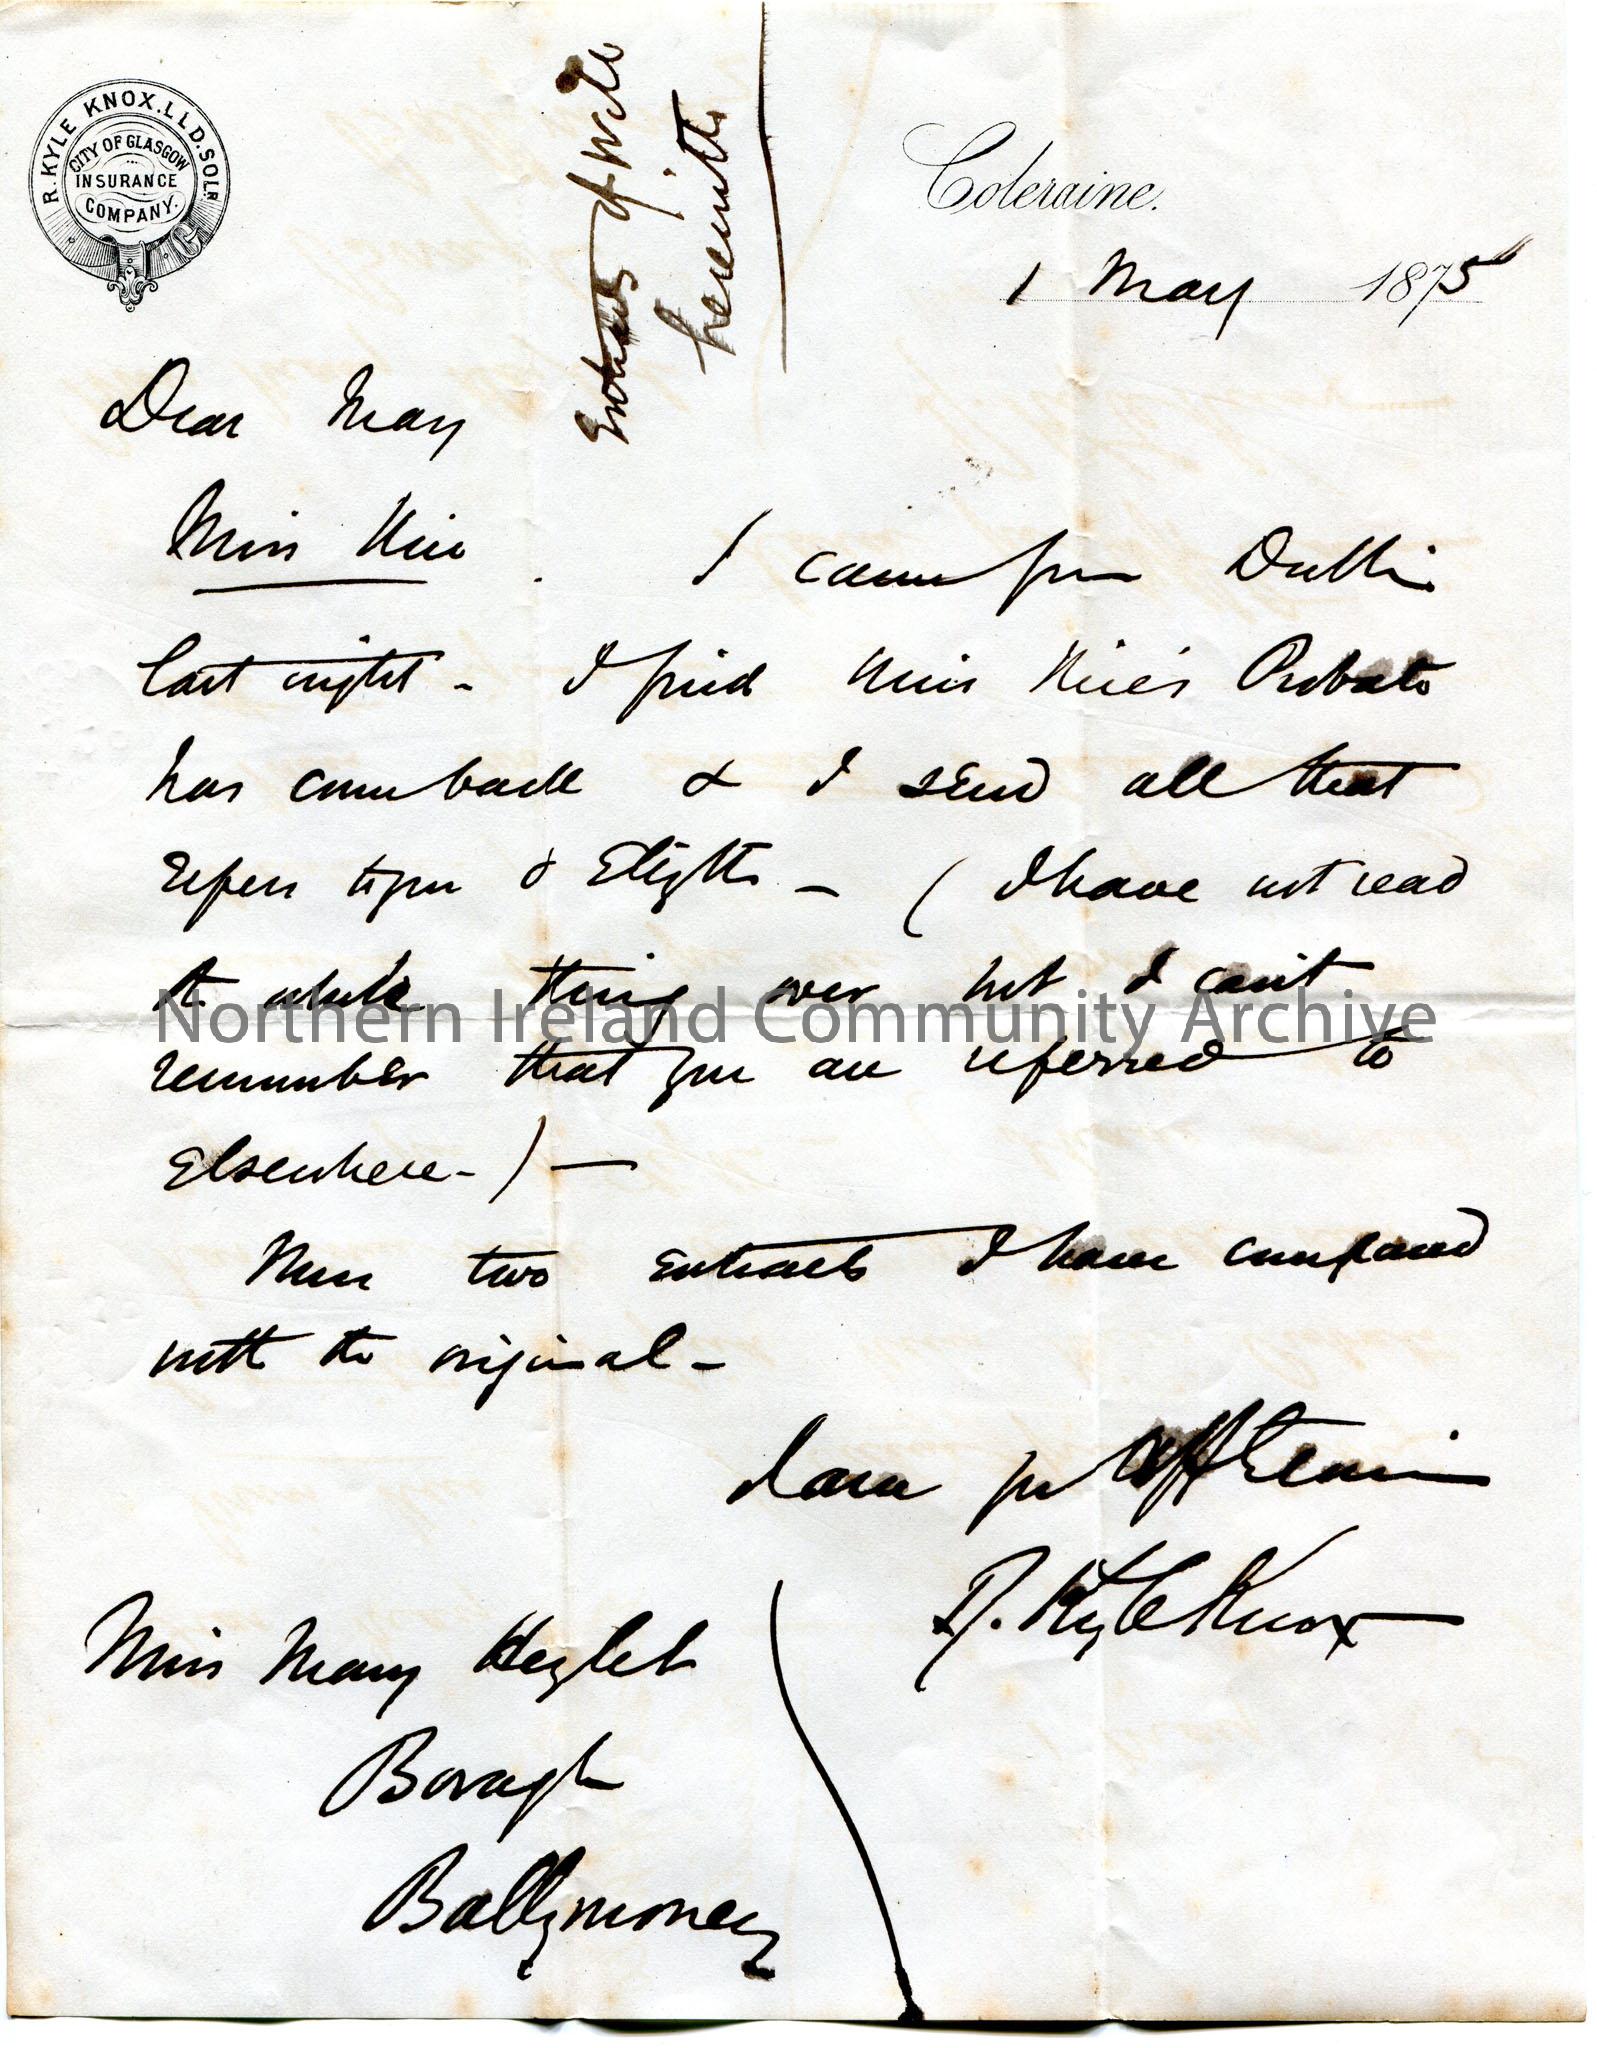 R. KYLE KNOX. L.L.D. SOLR.
CITY OF GLASGOW
INSURANCE
COMPANY.
Extracts of Will
herewith
Coleraine.
1 May 1875
Dear Mary
Miss I came from Dublin
last night - I find Miss Probate
has come back & I send all that
refers to you & - ( I have not read
the whole thing over but I can't
remember that you are referred to
Elsewhere - ) —
These two extracts I have compared
with the original -
I am yr
R. Kyle Knox
Miss Mary Hezlet
Bovagh
Ballymoney
Northern Ireland Community Archive